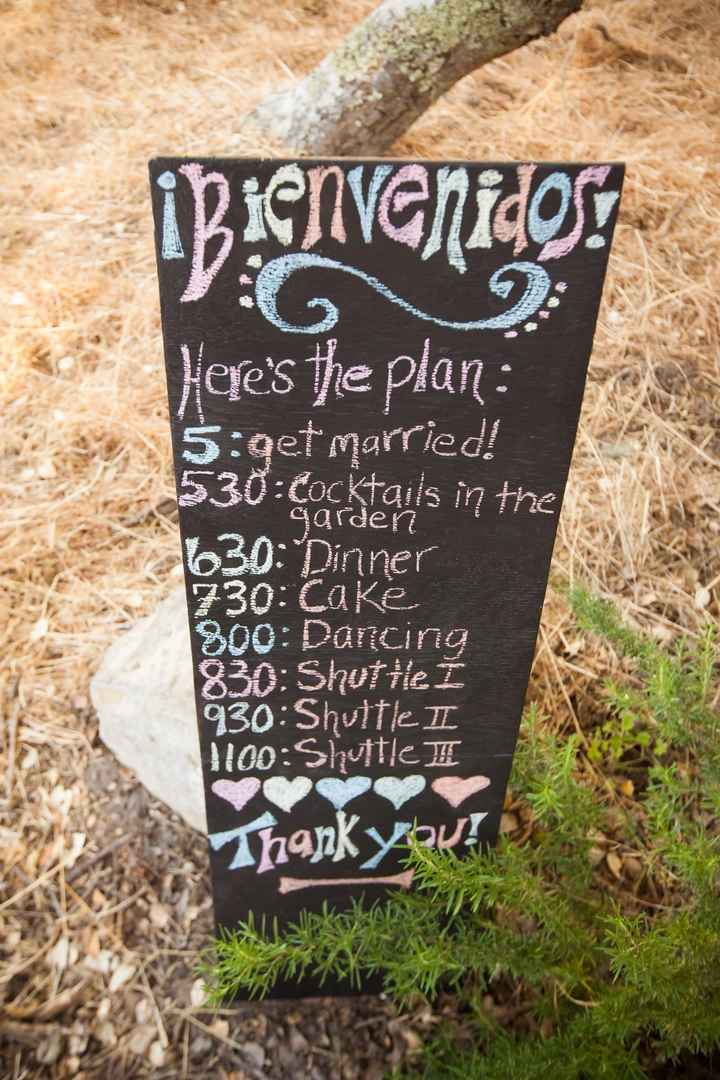 ¡Bienvenidos!
Here's the plan:
5: get married!
530: Cocktails in the
garden
630: Dinner
730: Cake
800: Dancing
830: Shuttle I
930: Shuttle II
1100: Shuttle III
Thank you!